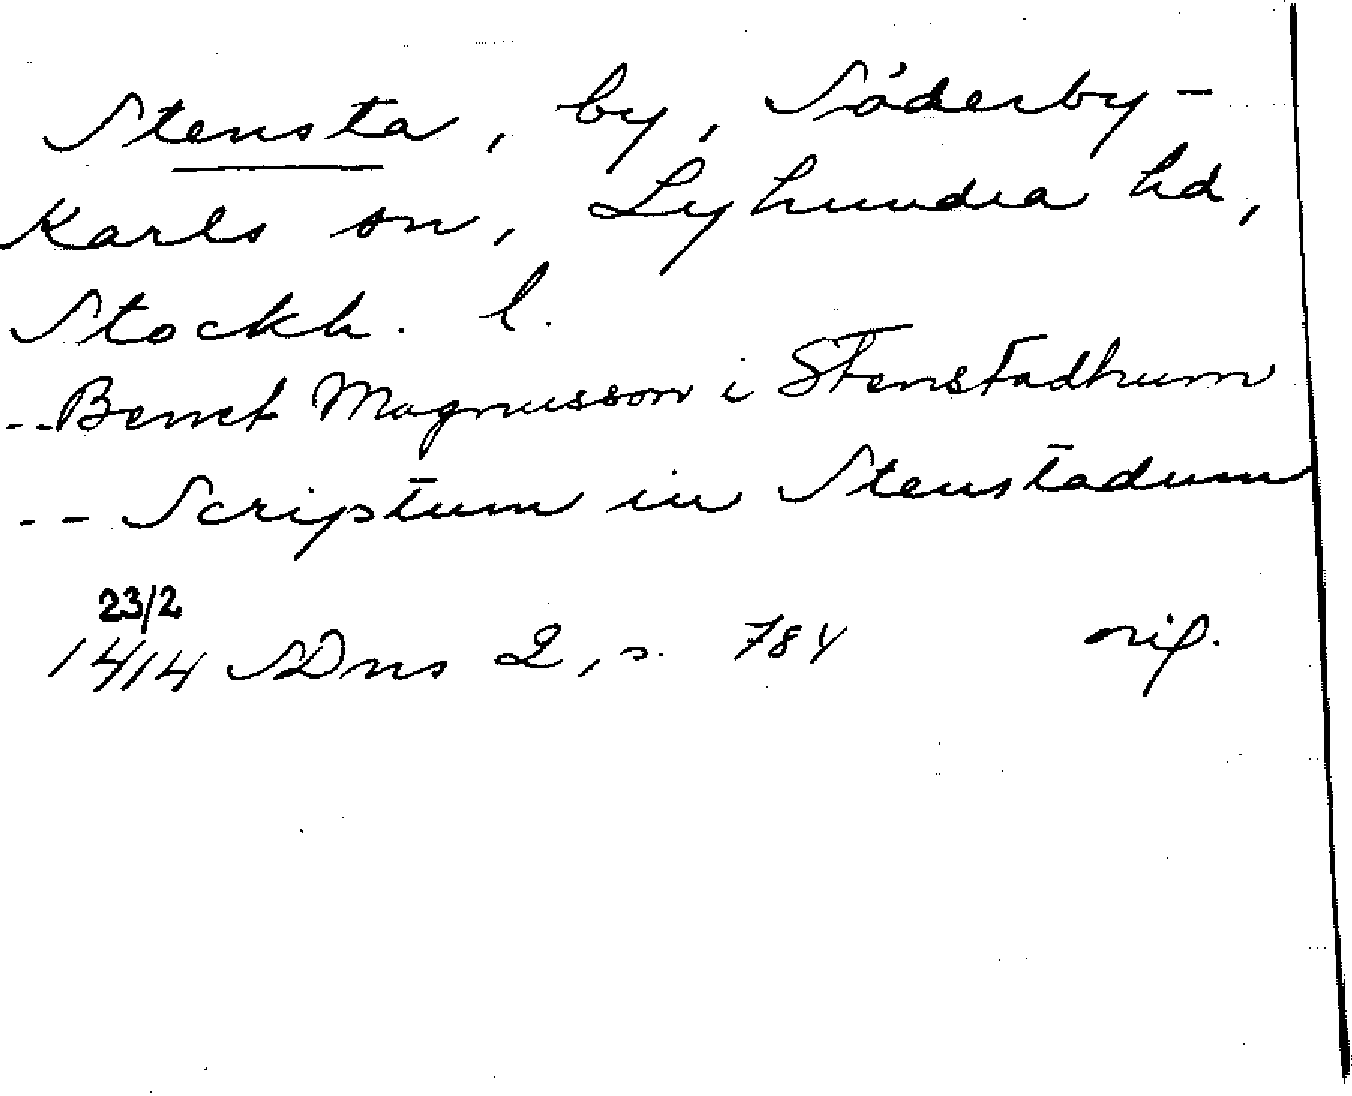 Stensta, by, Söderby-
Karls sn, Lyhundra hd,
Stockh. l.
-- Benct Magnusson i Stenstadhum
-- Scriptum in Stenstadum
23/2
1414 SDns 2, s. 784 orig.